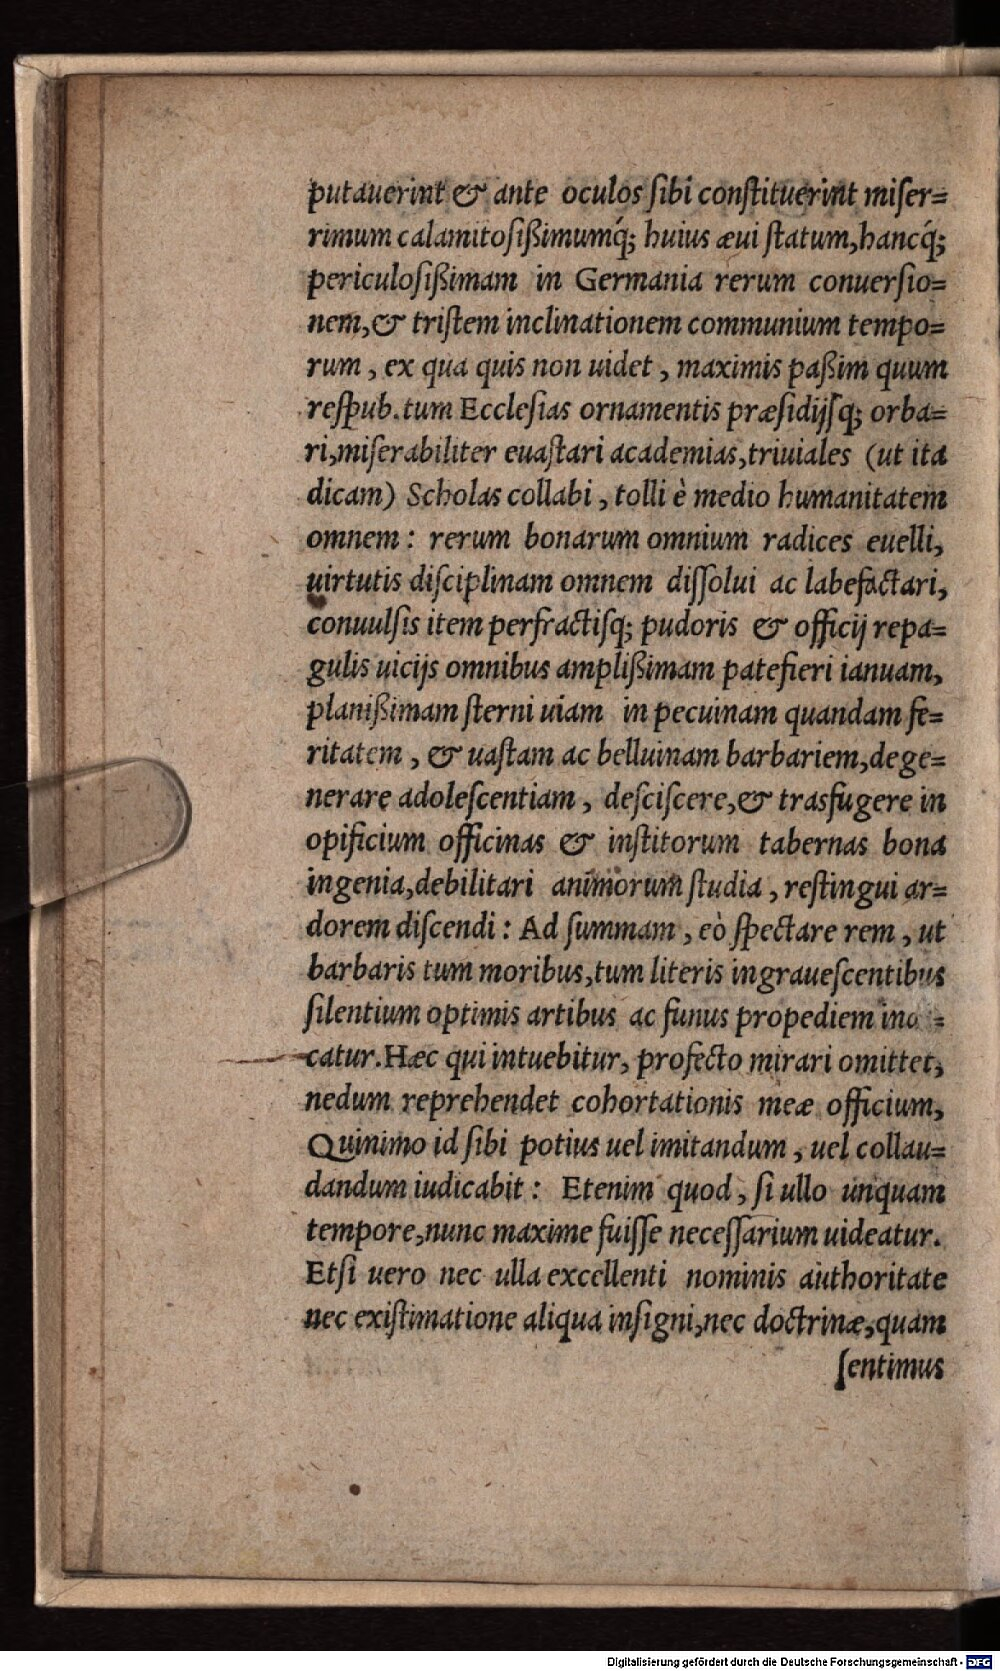 putauerint & ante oculos ſibi conſtituerint miſer=
rimum calamitoſißimumq́; huius æui ſtatum, hancq́;
periculoſißimam in Germania rerum conuerſio=
nem, & triſtem inclinationem communium tempo=
rum, ex qua quis non uidet, maximis paßim quum
reſpub. tum Eccleſias ornamentis præſidijſq; orba=
ri, miſerabiliter euaſtari academias, triuiales (ut ita
dicam) Scholas collabi, tolli è medio humanitatem
omnem: rerum bonarum omnium radices euelli,
uirtutis diſciplinam omnem diſſolui ac labefactari,
conuulſis item perfractiſq; pudoris & officij repa=
gulis uicijs omnibus amplißimam patefieri ianuam,
planißimam ſterni uiam in pecuinam quandam fe=
ritatem, & uaſtam ac belluinam barbariem, dege=
nerare adoleſcentiam, deſciſcere, & trasfugere in
opificium officinas & inſtitorum tabernas bona
ingenia, debilitari animorum ſtudia, reſtingui ar=
dorem diſcendi: Ad ſummam, eò ſpectare rem, ut
barbaris tum moribus, tum literis ingraueſcentibus
ſilentium optimis artibus ac funus propediem =
catur. Hæc qui intuebitur, profecto mirari omittet,
nedum reprehendet cohortationis meæ officium,
Quinimo id ſibi potius uel imitandum, uel collau=
dandum iudicabit: Etenim quod, ſi ullo unquam
tempore, nunc maxime fuiſſe neceſſarium uideatur.
Etſi uero nec ulla excellenti nominis authoritate
nec exiſtimatione aliqua inſigni, nec doctrinæ, quam
ſentimus
Digitalisierung gefördert durch die Deutsche Forschungsgemeinschaft - DFG